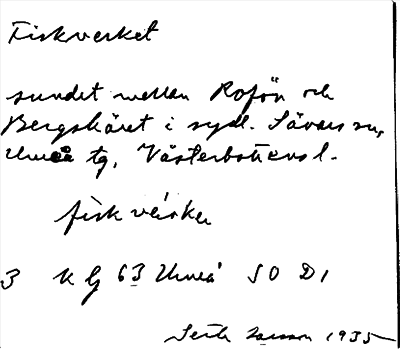 Fiskverket
sundet mellan Rofön och
Bergskäret i sydl. Sävars sn,
Umeå tg, Västerbottens l.
fisk
3 K G 63 Umeå SO D1
1935